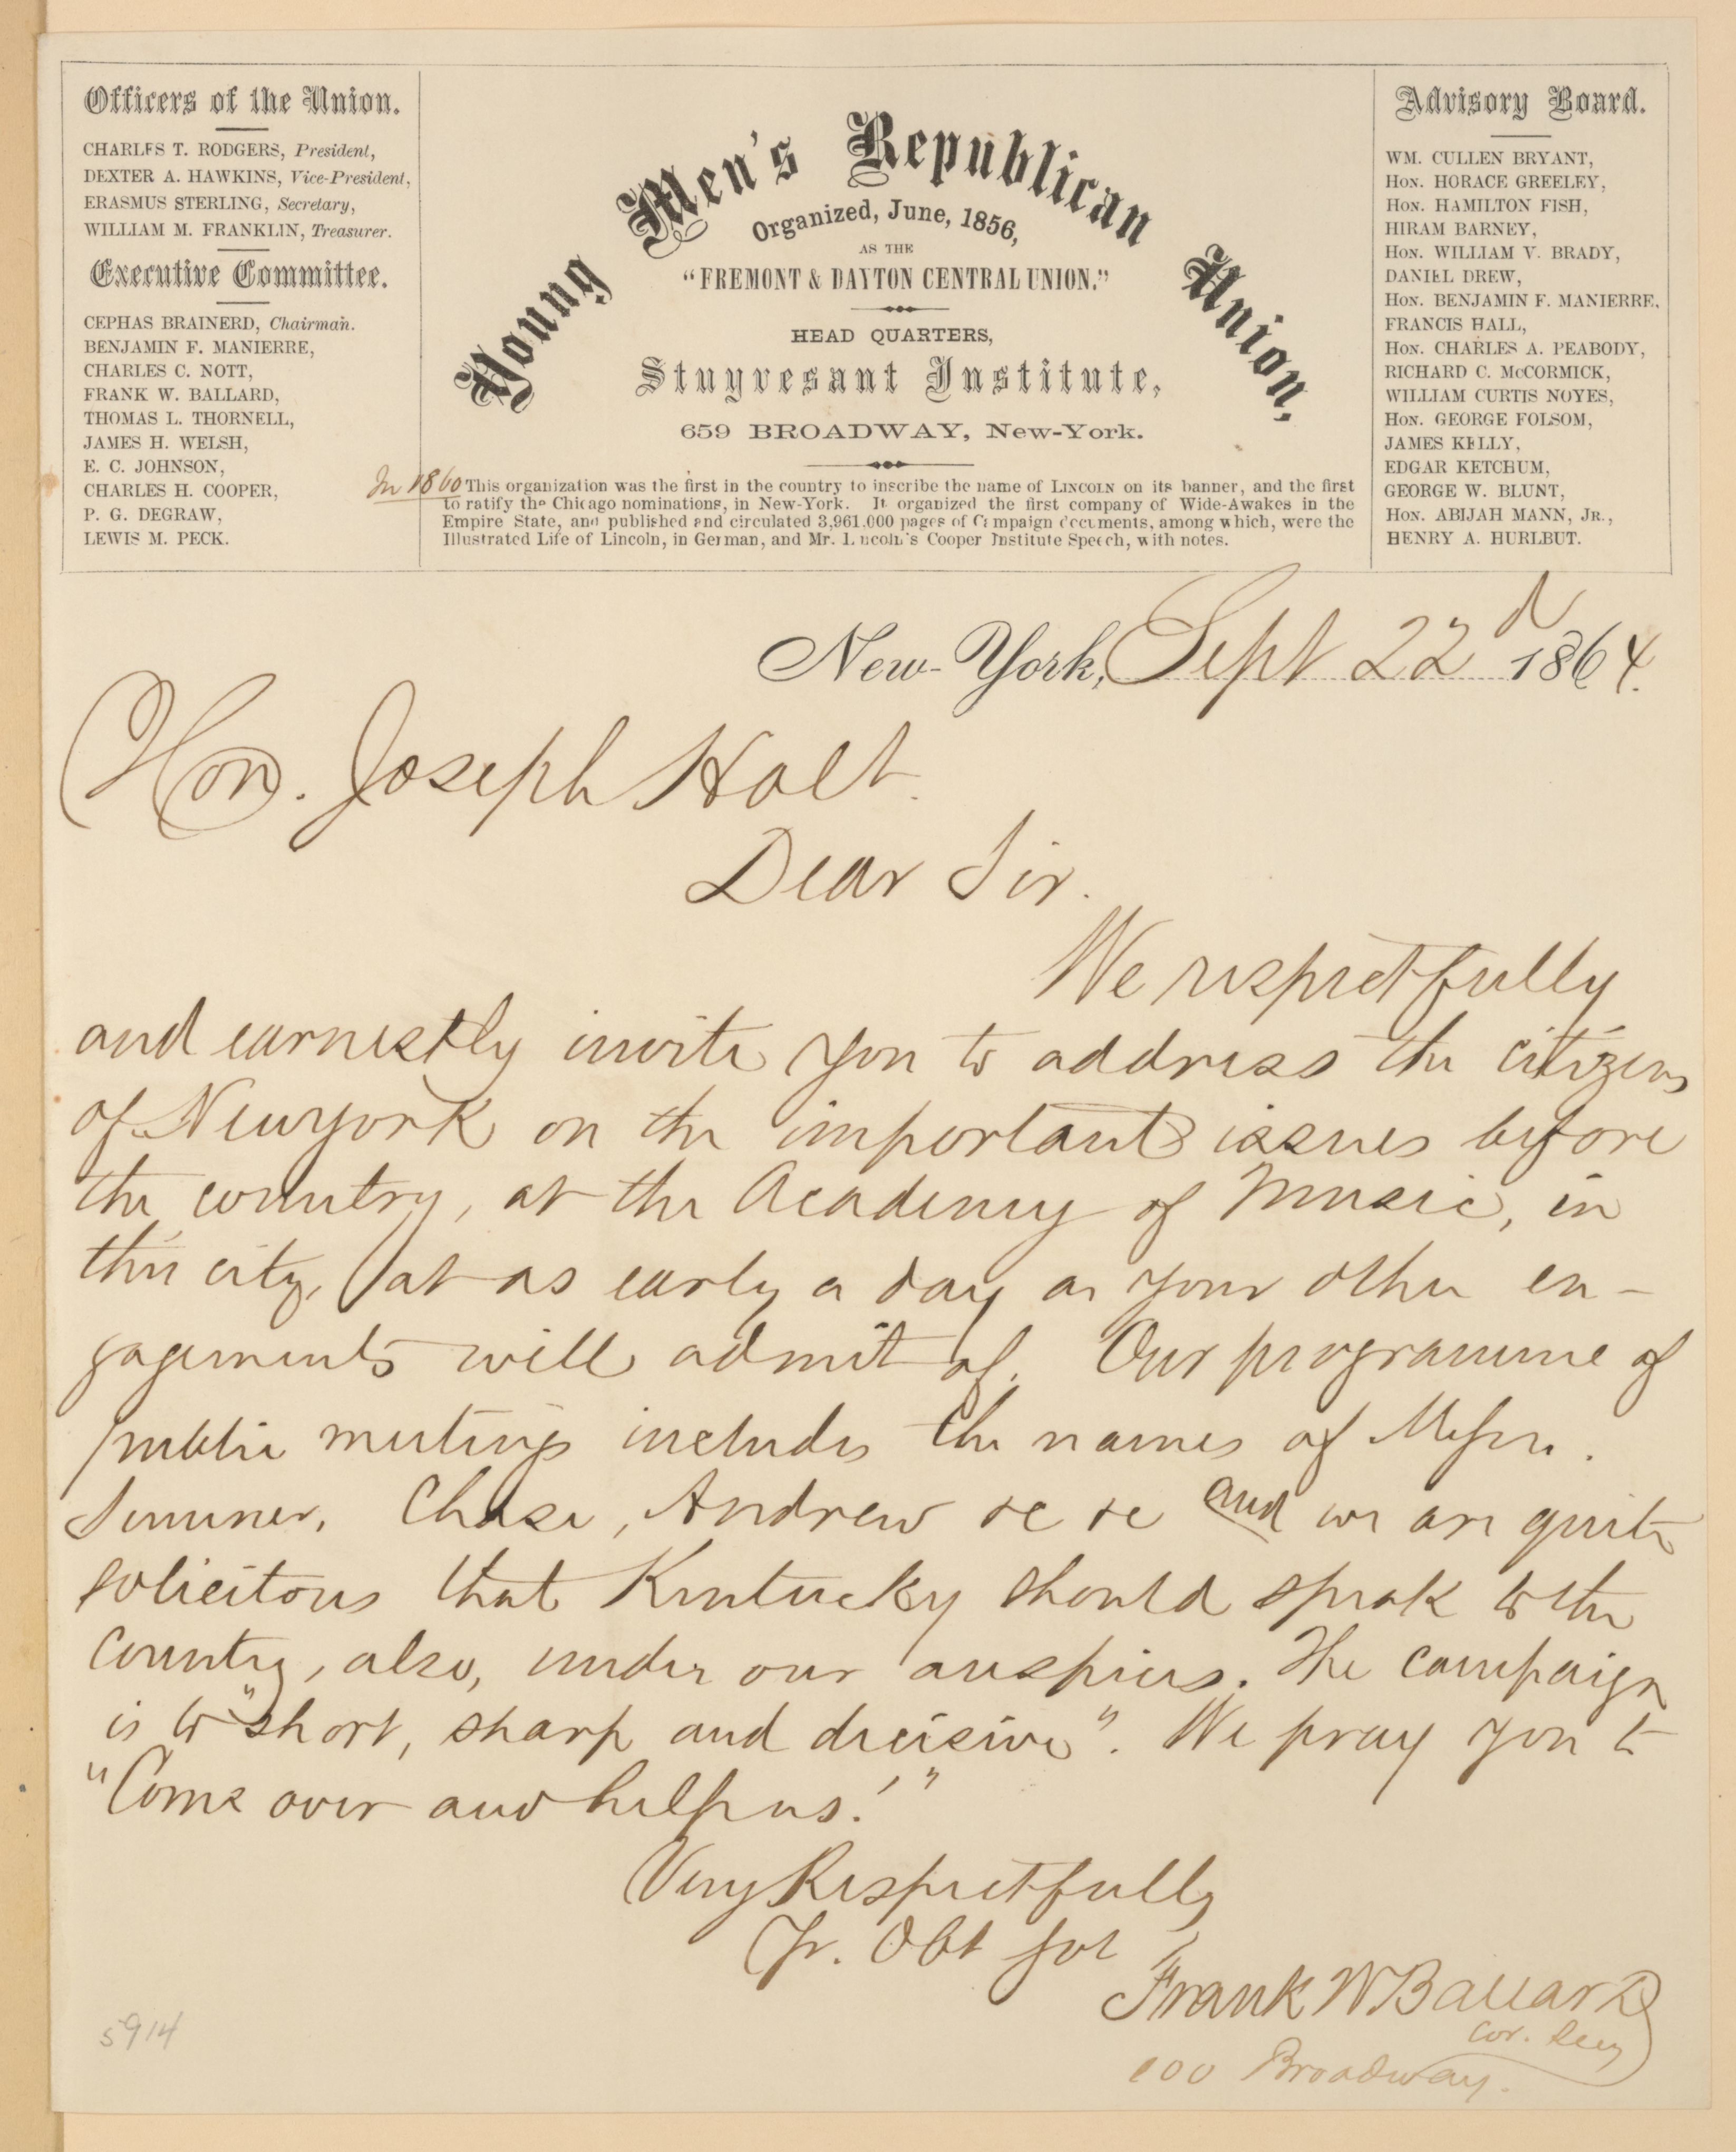 Officers of the Union.
CHARLES T. RODGERS, President,
DEXTER A. HAWKINS, Vice-President,
ERASMUS STERLING, Secretary,
WILLIAM M. FRANKLIN, Treasurer.
Executive Committee.
CEPHAS BRAINERD, Chairman.
BENJAMIN F. MANIERRE,
CHARLES C. NOTT,
FRANK W. BALLARD,
THOMAS L. THORNELL,
JAMES H. WELSH,
E. C. JOHNSON,
CHARLES H. COOPER,
P. G. DEGRAW,
LEWIS M. PECK.
Young Men's Republican Union,
Organized, June, 1856,
AS THE
"FREMONT & DAYTON CENTRAL UNION."
HEAD QUARTERS,
Stuyvesant Institute,
659 BROADWAY, New-York.
In 1860 This organization was the first in the country to inscribe the name of LINCOLN on its banner, and the first
to ratify the Chicago nominations, in New-York. It organized the first company of Wide-Awakes in the
Empire State, and published and circulated 3,961,000 pages of Campaign documents, among which, were the
Illustrated Life of Lincoln, in German, and Mr. Lincoln's Cooper Institute Speech, with notes.
Advisory Board.
WM. CULLEN BRYANT,
Hon. HORACE GREELEY,
Hon. HAMILTON FISH,
HIRAM BARNEY,
Hon. WILLIAM V. BRADY,
DANIEL DREW,
Hon. BENJAMIN F. MANIERRE,
FRANCIS HALL,
Hon. CHARLES A. PEABODY,
RICHARD C. McCORMICK,
WILLIAM CURTIS NOYES,
Hon. GEORGE FOLSOM,
JAMES KELLY,
EDGAR KETCHUM,
GEORGE W. BLUNT,
Hon. ABIJAH MANN, JR.,
HENRY A. HURLBUT.
New-York, Sept 22d 1864.
Hon. Joseph Holt.
Dear Sir.
We respectfully
and earnestly invite you to address the citizens
of New york on the important issues before
the country, at the Academy of Music, in
this city, at as early a day as your other en-
gagements will admit of. Our programme of
public meetings includes the names of Messrs.
Sumner, Chase, Andrew &c &c and we are quite
solicitous that Kentucky should speak to the
country, also, under our auspices. The campaign
is to "short, sharp and decisive". We pray you to
"Come over and help us!"
Very Respectfully
Yr. Obt Svt
Frank W Ballard
Cor. Secy
100 Broadway.
5914